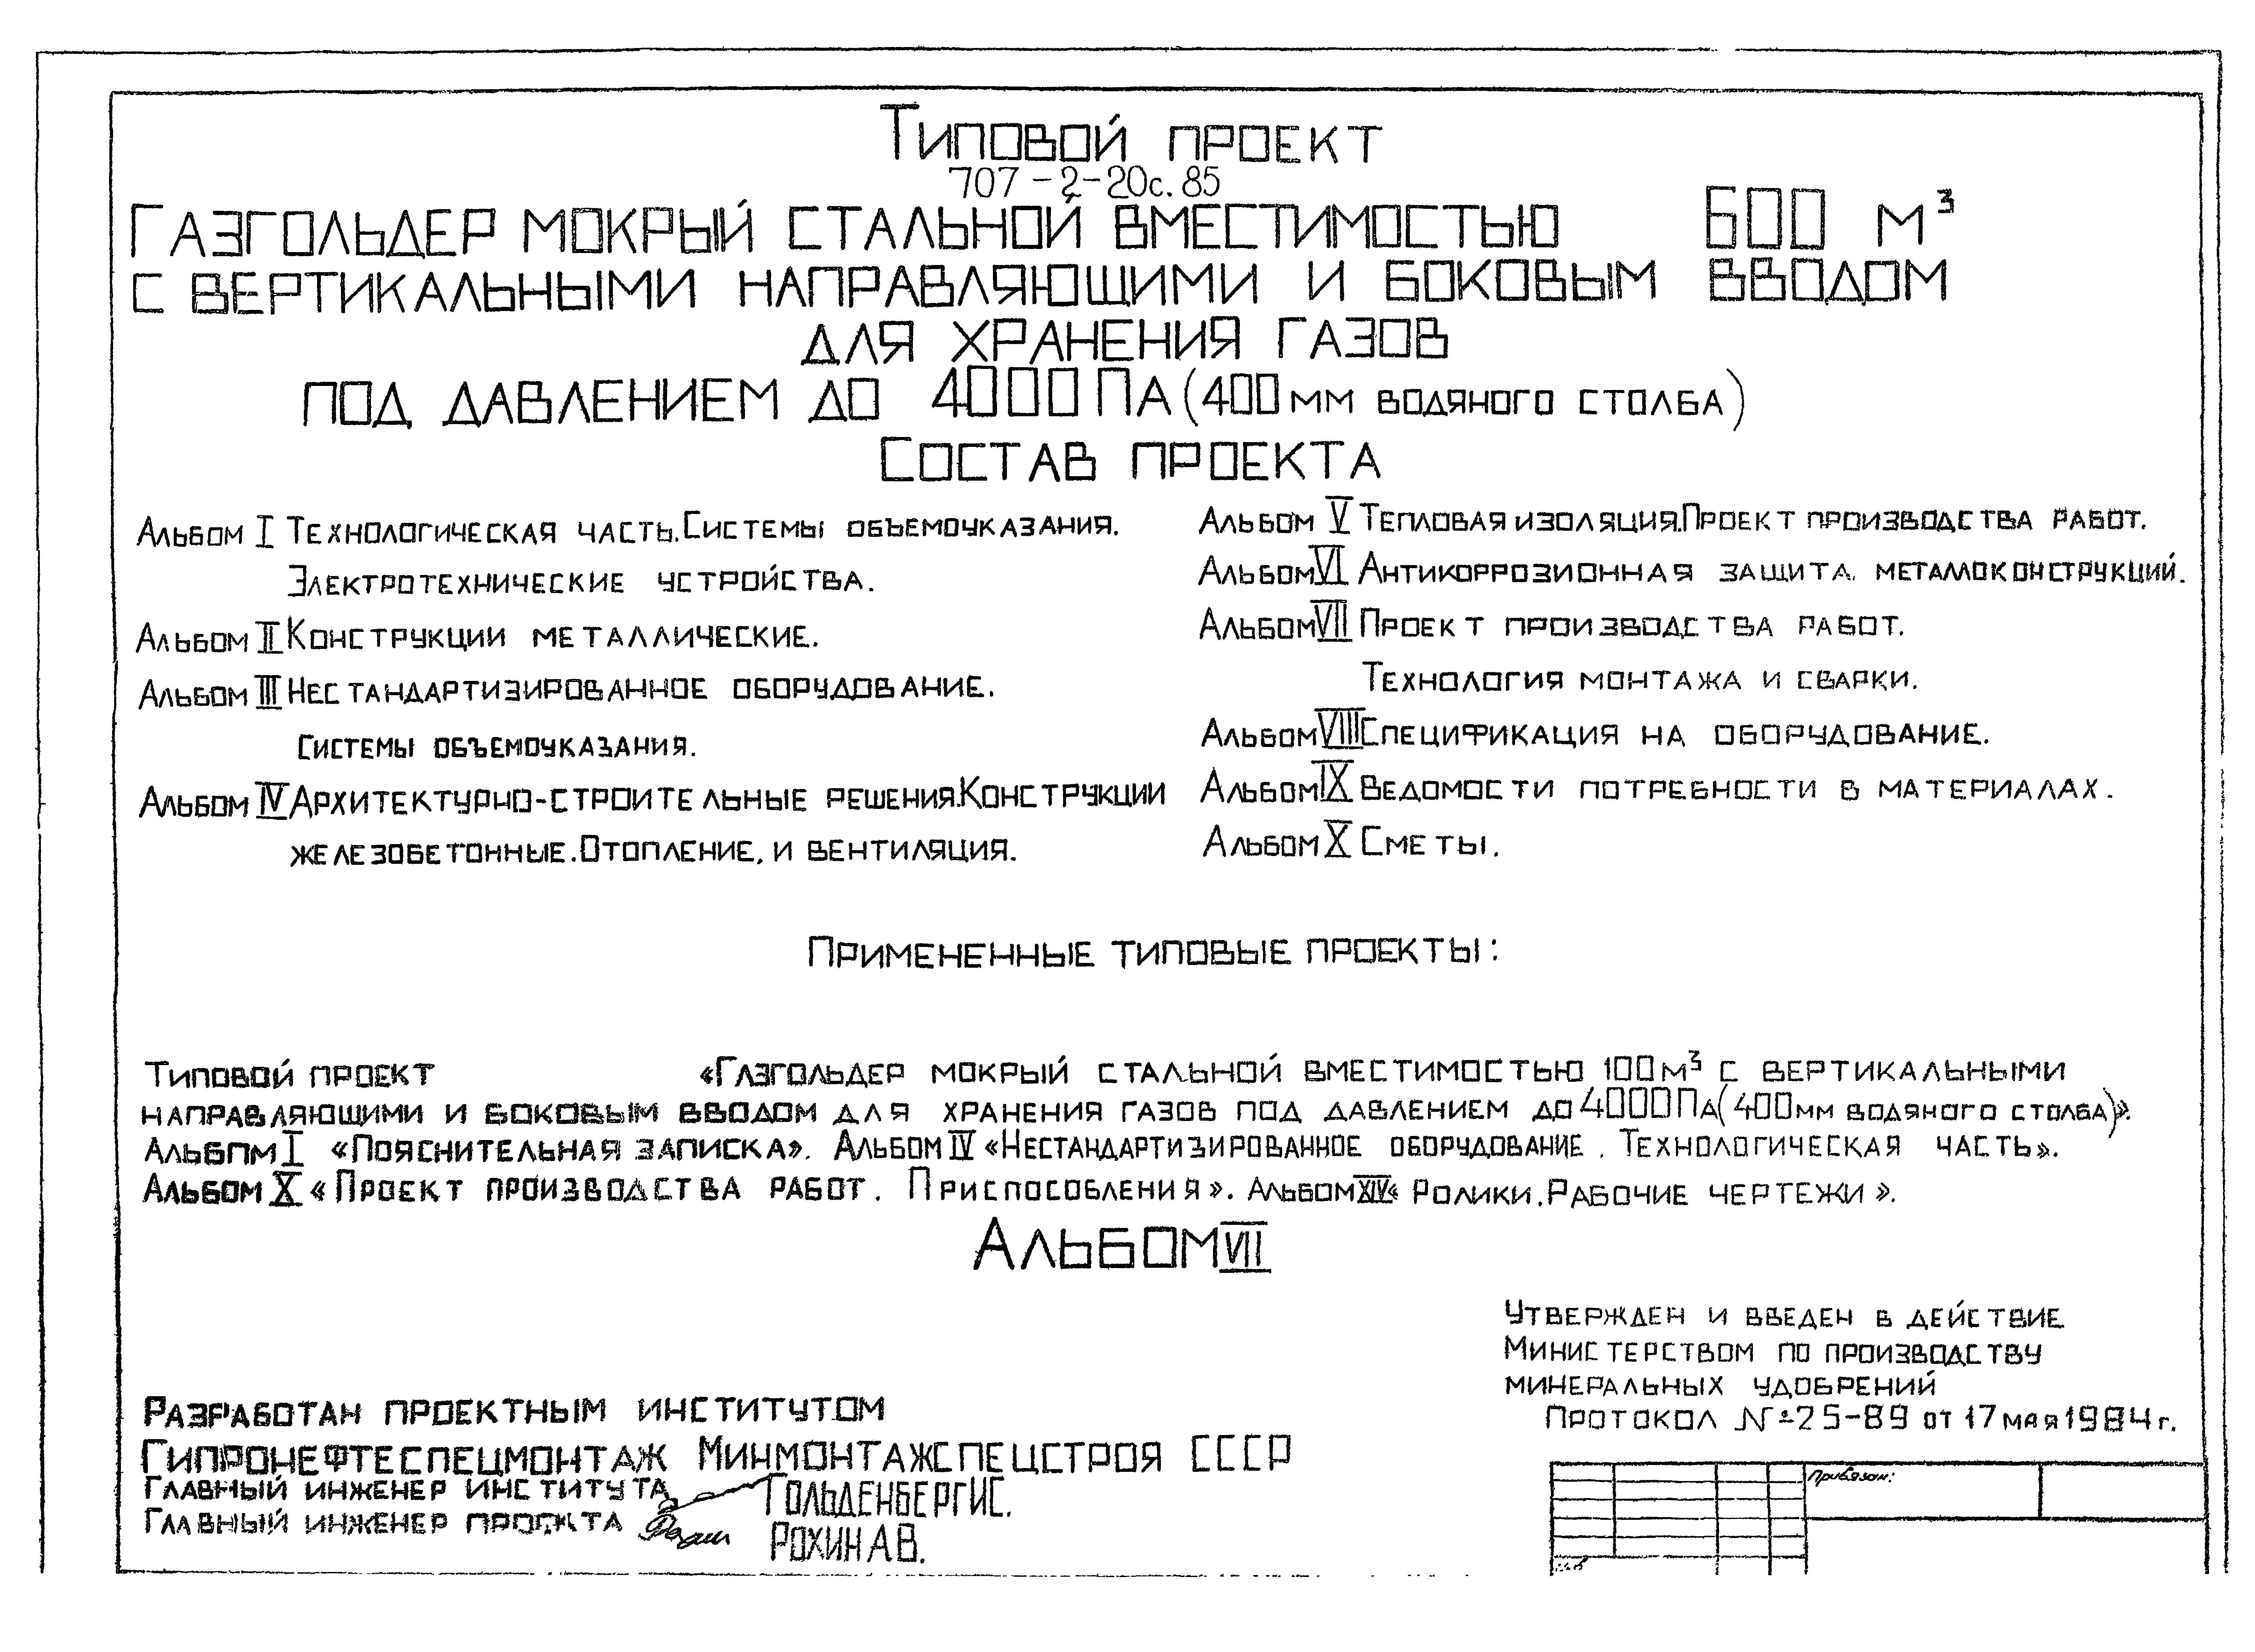 Типовой проект
707-2-20с.85
Газгольдер мокрый стальной вместимостью 600 м³
с вертикальными направляющими и боковым вводом
для хранения газов
под давлением до 4000 Па (400 мм водяного столба)
Состав проекта
Альбом I Технологическая часть. Системы объемоуказания.
Электротехнические устройства.
Альбом II Конструкции металлические.
Альбом III Нестандартизированное оборудование.
Системы объемоуказания.
Альбом IV Архитектурно-строительные решения. Конструкции
железобетонные. Отопление, и вентиляция.
Альбом V Тепловая изоляция. Проект производства работ.
Альбом VI Антикоррозионная защита металлоконструкций.
Альбом VII Проект производства работ.
Технология монтажа и сварки.
Альбом VIII Спецификация на оборудование.
Альбом IX Ведомости потребности в материалах.
Альбом X Сметы.
Примененные типовые проекты:
Типовой проект «Газгольдер мокрый стальной вместимостью 100 м³ с вертикальными
направляющими и боковым вводом для хранения газов под давлением до 4000 Па (400 мм водяного столба)».
Альбом I «Пояснительная записка». Альбом IV «Нестандартизированное оборудование. Технологическая часть».
Альбом X «Проект производства работ. Приспособления». Альбом XIV «Ролики. Рабочие чертежи».
Альбом VII
Утвержден и введен в действие
Министерством по производству
минеральных удобрений
Протокол № 25-89 от 17 мая 1984 г.
Разработан проектным институтом
Гипронефтеспецмонтаж Минмонтажспецстроя СССР
Главный инженер института Гольденберг И.С.
Главный инженер проекта Рохин А.В.
Привязан: